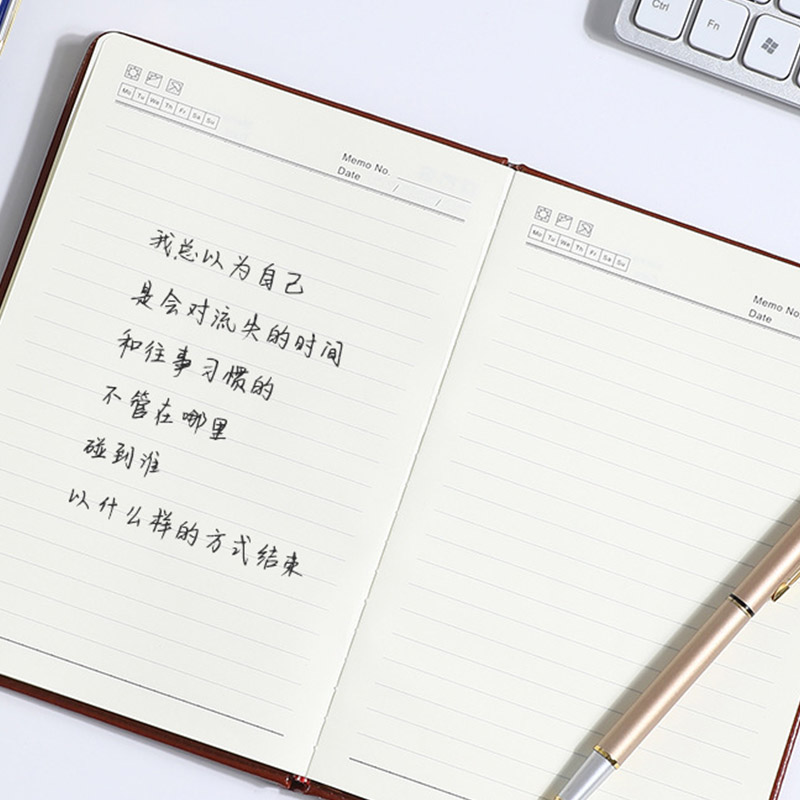 Ctrl
Fn
Mo Tu We Th Fr Sa Su
Memo No.
Date / /
我总以为自己
是会对流失的时间
和往事习惯的
不管在哪里
碰到谁
以什么样的方式结束
Mo Tu We Th Fr Sa Su
Memo No.
Date